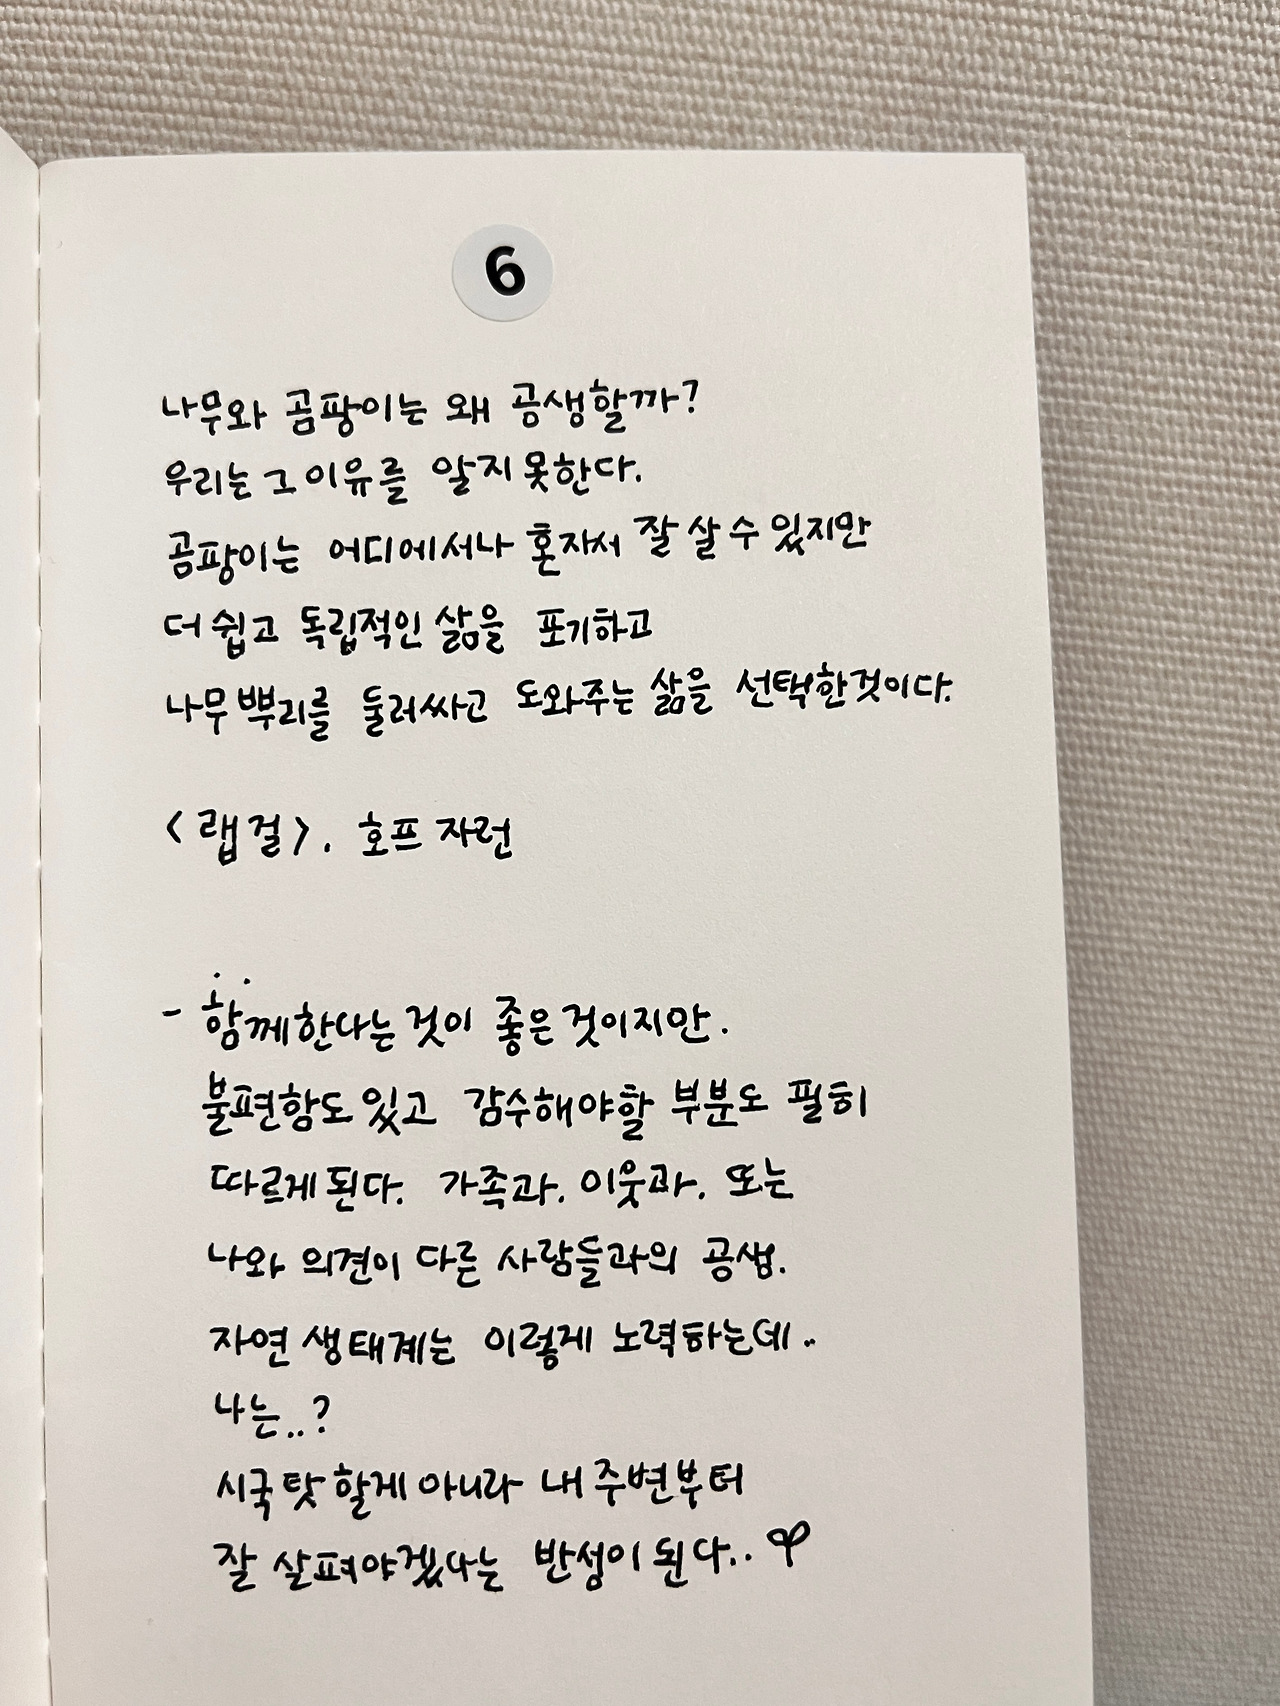 6
나무와 곰팡이는 왜 공생할까?
우리는 그 이유를 알지 못한다.
곰팡이는 어디에서나 혼자서 잘 살 수 있지만
더 쉽고 독립적인 삶을 포기하고
나무 뿌리를 둘러싸고 도와주는 삶을 선택한것이다.
<랩걸>. 호프 자런
- 함께한다는 것이 좋은 것이지만.
불편함도 있고 감수해야할 부분도 필히
따르게 된다. 가족과. 이웃과. 또는
나와 의견이 다른 사람들과의 공생.
자연 생태계는 이렇게 노력하는데..
나는..?
시국 탓 할게 아니라 내 주변부터
잘 살펴야겠다는 반성이 된다..